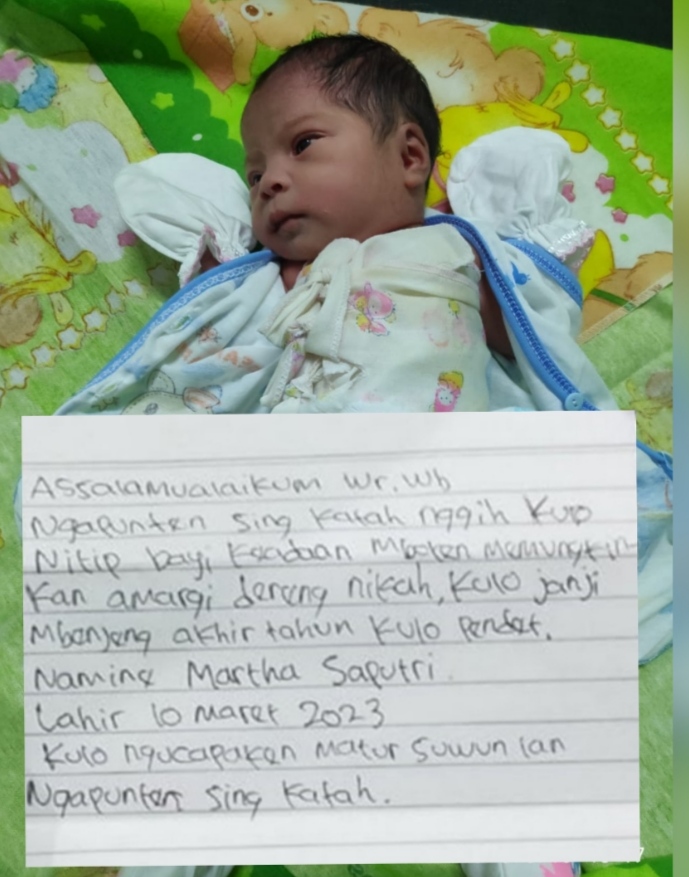 Assalamualaikum Wr. Wb
Ngapunten sing katah nggih Kulo
Nitip bayi Keadaan Mboten memungkin-
kan amargi dereng nikah, Kulo janji
Mbenjeng akhir tahun Kulo Pendet.
Namine Martha Saputri.
Lahir 10 Maret 2023
Kulo ngucapaken matur Suwun lan
Ngapunten Sing Katah.